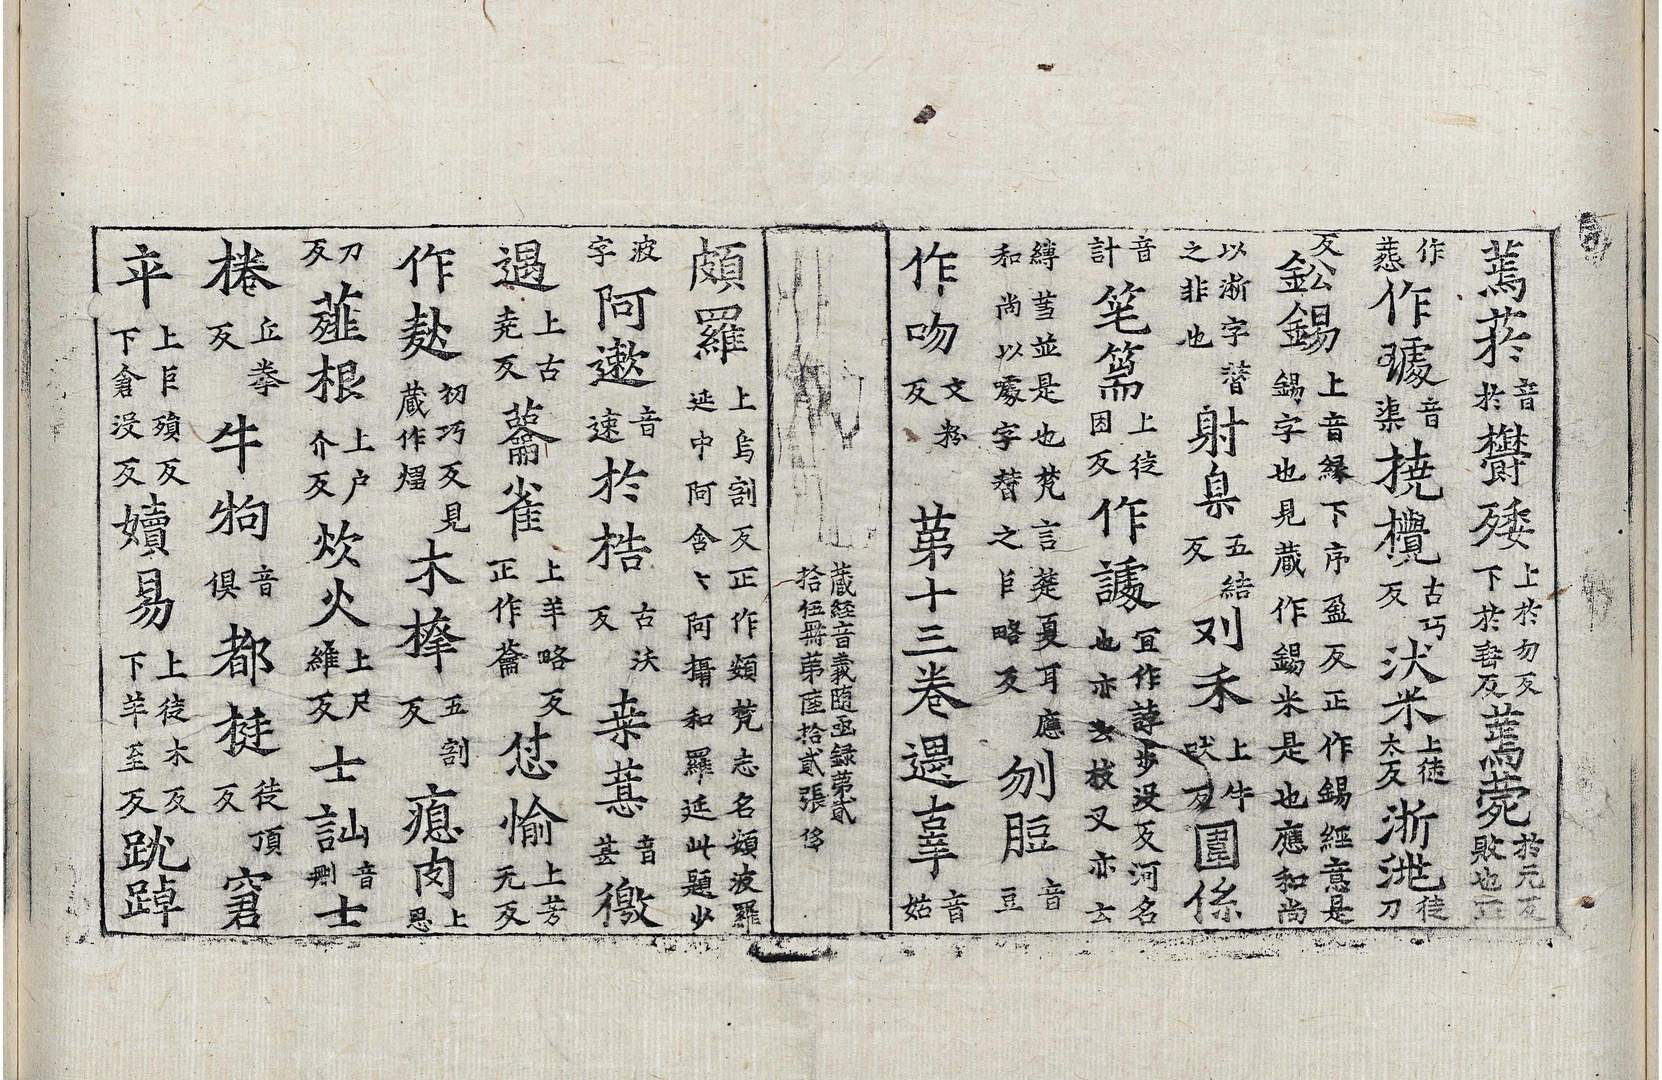 蔫菸音於鬱矮上於勿反下於垂反蔫薨於元反敗也正
作蔫作璩音渠撓攪古巧反汏米上徒太反淅㴽徒刀
反鈆錫上音縁下序盈反正作錫經意是錫字也見藏作錫米是也應和尚
以淅字替之非也射臬五結反刈禾上牛吠反圍係
音計笔篅上徒因反作謢宜作諄步没反河名也亦云枝叉亦云
縛芻並是也梵言蒭夏耳應和尚以㝡字替之巨略反刎脰音豆
作吻文粉反苐十三卷遏辜音姑
藏經音義随函録苐貳拾伍冊苐陸拾貳張
頞羅上烏割反正作頞梵志名頞波羅延中阿含云阿攝和羅延此題少
波字阿遬音速於梏古沃反桒葚音甚徼
遏上古堯反蘥雀上羊略反正作蘥愆愉上芳无反
作麨初巧反見藏作㷅木搼五割反瘜肉上恩
刀反薤根上户介反炊火上尺維反士訕音刪士
棬丘拳反牛㹱音俱都挺徒頂反窘
卒上巨殞反下倉没反嬻易上徒木反下羊至反跳踔